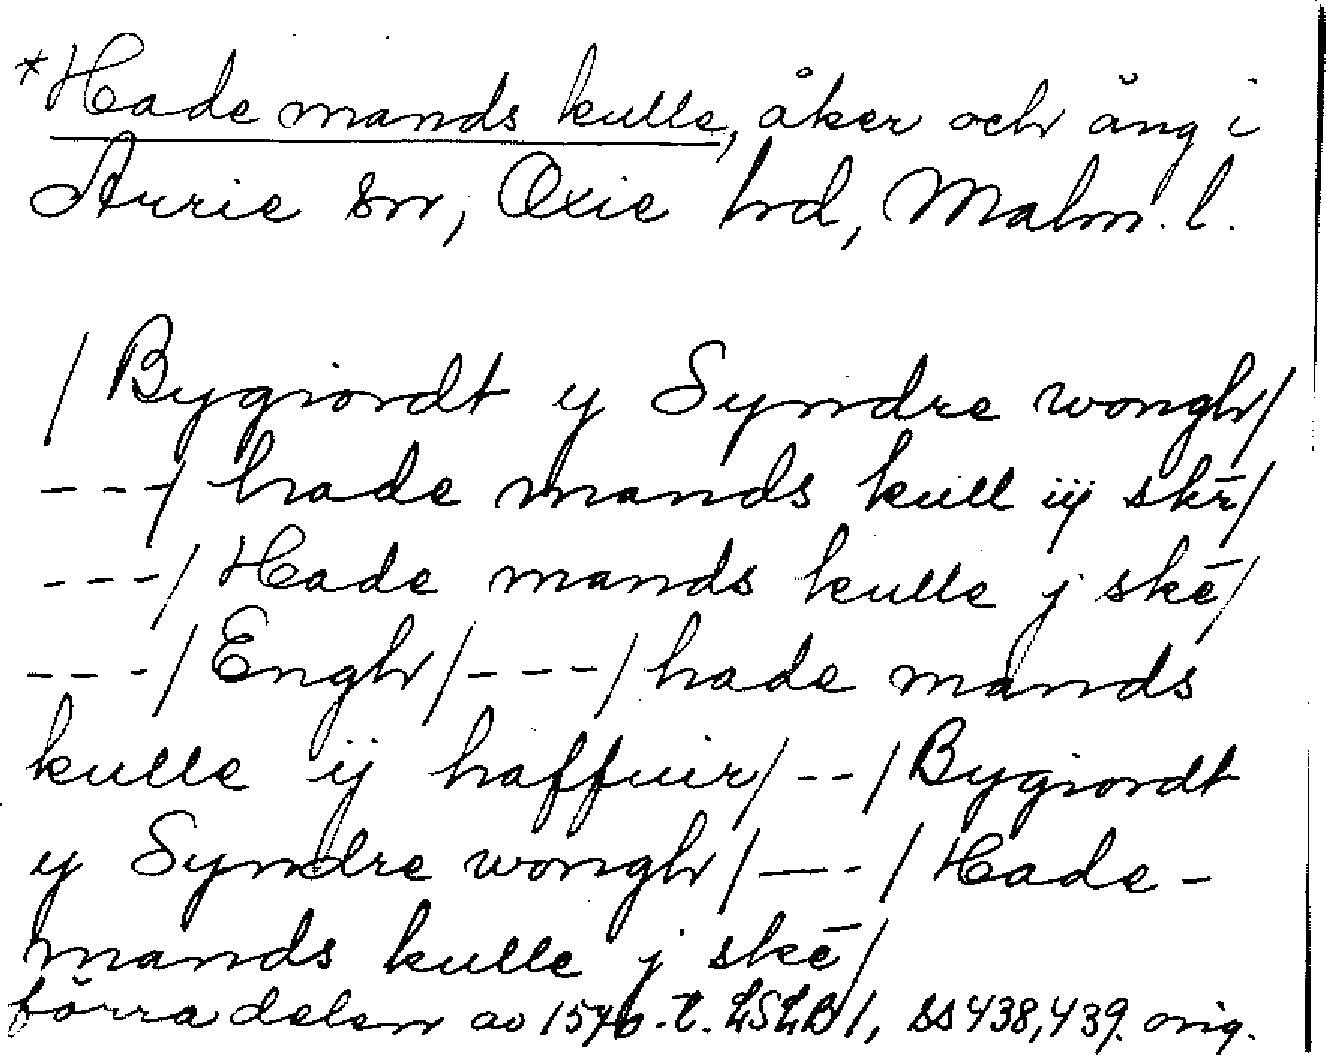 *Hade mands kulle, åker och äng i
Arrie sn, Oxie hd, Malm. l.
/Bygiordt y Syndre wongh/
---/ hade mands kull iij skr̄/
---/ Hade mands kulle j skē/
---/ Engh/---/ hade mands
kulle ij haffuir/--/Bygiordt
y Syndre wongh/---/Hade-
mands kulle j skē/
förra delen av 1570-t. LSLB 1, ss 438, 439. orig.